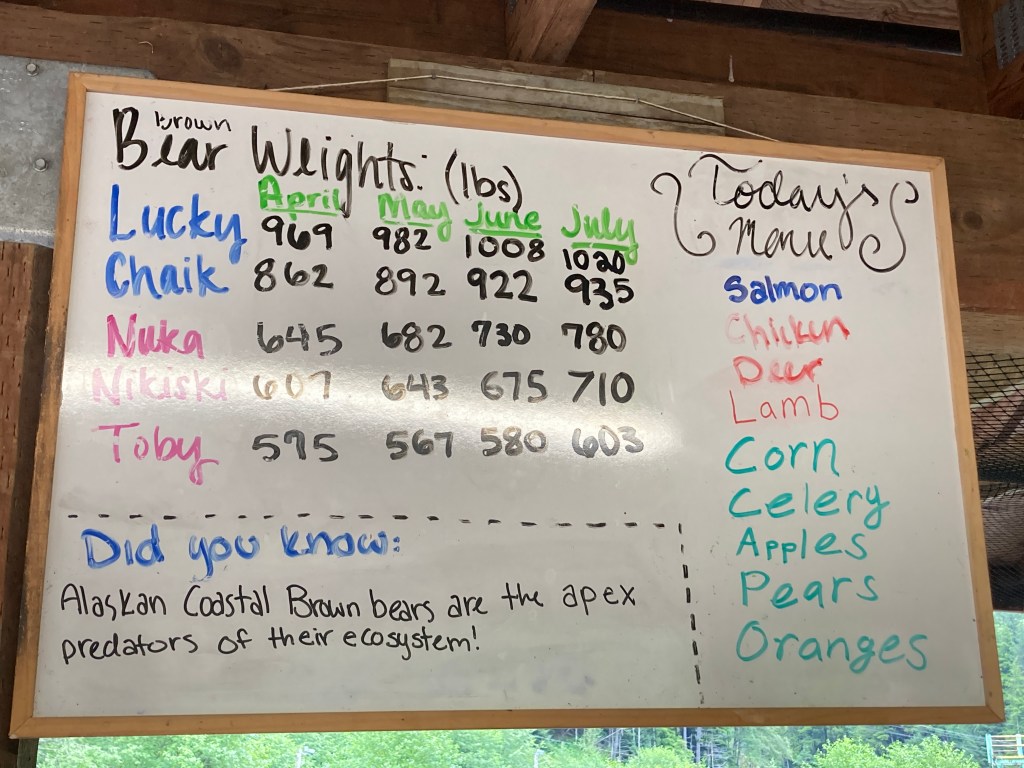 Brown
Bear Weights: (lbs)
April May June July
Lucky 969 982 1008 1020
Chaik 862 892 922 935
Nuka 645 682 730 780
Nikiski 607 643 675 710
Toby 595 567 580 603
Did you know:
Alaskan Coastal Brown bears are the apex
predators of their ecosystem!
Today's
Menu
Salmon
Chicken
Deer
Lamb
Corn
Celery
Apples
Pears
Oranges